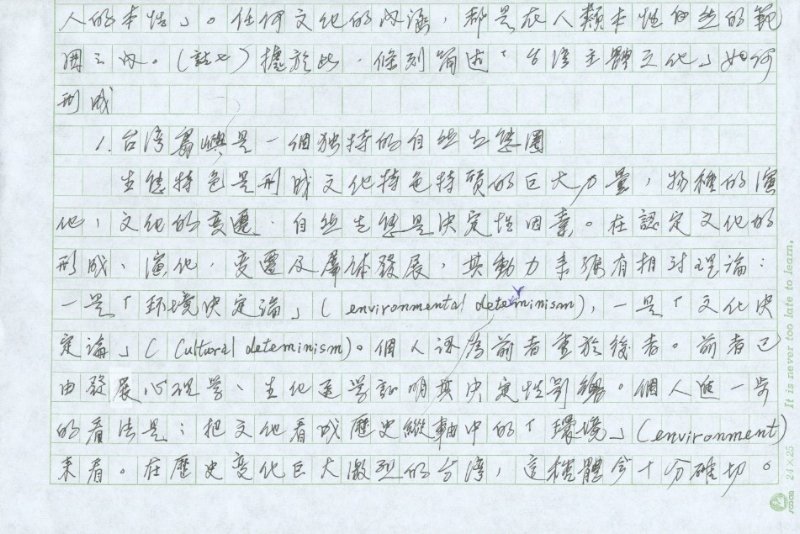 人的本性」。任何文化的內涵，都是在人類本性自然的範
圍之內。(註七)據於此，條列簡述「台湾主體文化」如何
形成
1. 台湾島嶼是一個独特的自然生態圈
生態特色是形成文化特色特質的巨大力量，物種的演
化，文化的变遷，自然生態是決定性因素。在認定文化的
形成、演化、变遷及群体發展，其動力素強有相对理論：
一是「环境決定論」(environmental determinism)，一是「文化決
定論」(Cultural deteminism)。個人認為前者重於後者。前者已
由發展心理学、生化遗学証明其決定性影響。個人進一步
的看法是：把文化看成歷史縱軸中的「環境」(environment)
來看。在歷史变化巨大激烈的台湾，這種體会十分確切。
It is never too late to learn.
24×25